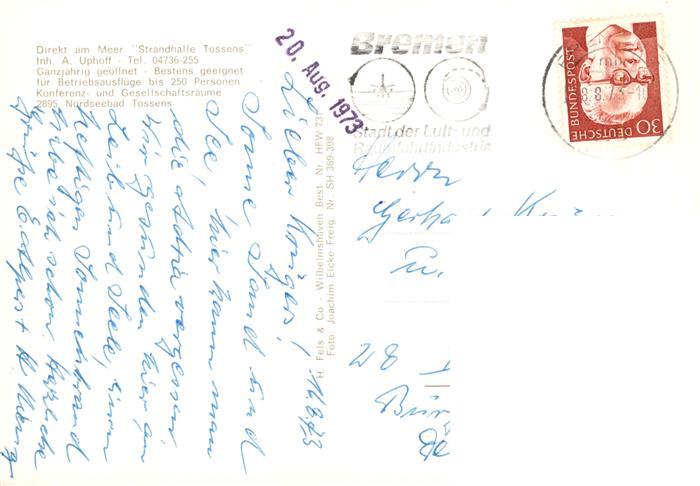 Direkt am Meer "Strandhalle Tossens"
Inh. A. Uphoff - Tel. 04736-255
Ganzjährig geöffnet - Bestens geeignet
für Betriebsausflüge bis 250 Personen
Konferenz- und Gesellschaftsräume
2895 Nordseebad Tossens
20. Aug. 1973
Bremen
Stadt der Luft- und
Raumfahrtindustrie
8.8.73-1
DEUTSCHE
BUNDESPOST
30
H. Fels & Co - Wilhelmshaven Best. Nr. HFW 73
Foto: Joachim Eicke Freig. Nr. SH 369-398
Lieber
Sonne Sand und
See, hier kann man
die vergessen
Wir gesunden hier an
Leib und Seele, einen
heftigen Sonnenbrand
habe ich schon. Herzliche
Grüße
Herrn
28